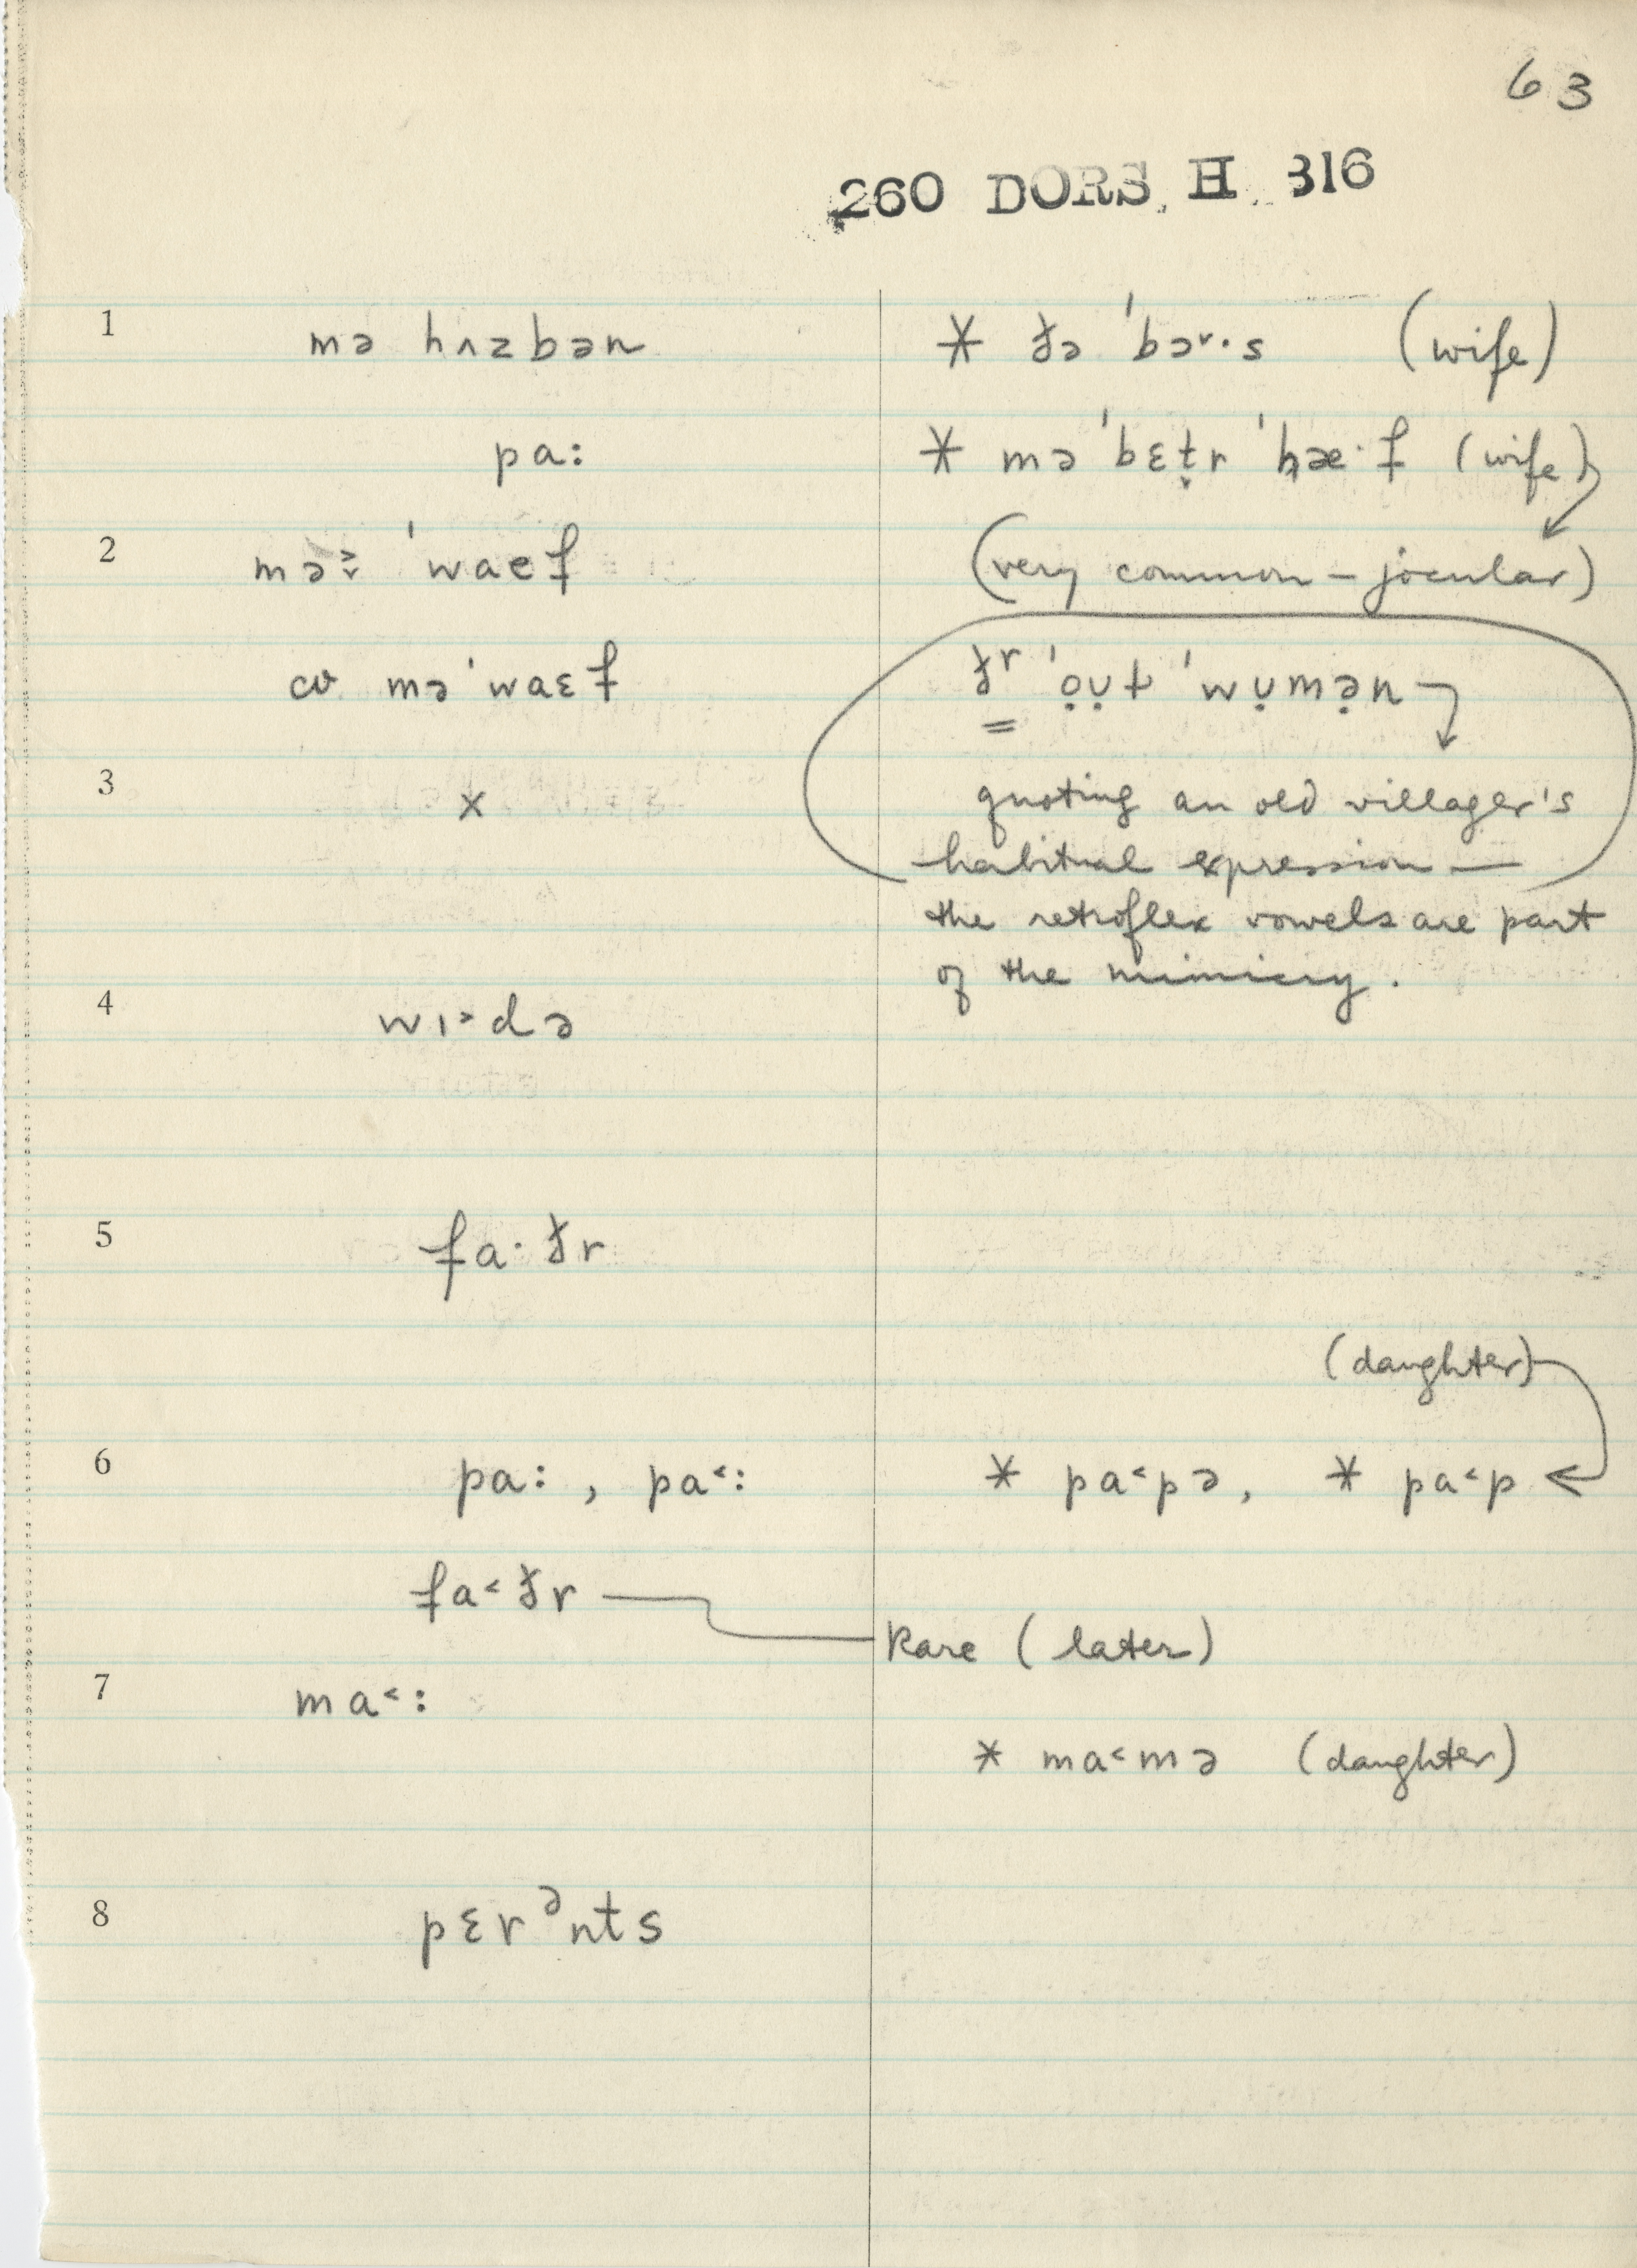 63
260 DORS. H. 316
1 mə hʌzbən * ðə ˈbɚ·s (wife)
pa: * mə ˈbɛt̬r ˈhæ·f (wife)
2 mə ˈwaef (very common – jocular)
mə ˈwaɛf ðr ˈo̤ṳɫ ˈwṳmə̤n
3 x quoting an old villager's
habitual expression —
the retroflex vowels are part
of the mimicry.
4 wɪ˃də
5 fa·ðr
(daughter)
6 pa: , pa˂: * pa˂pə, * pa˂p
fa˂ðr
Rare (later)
7 ma˂:
* ma˂mə (daughter)
8 pɛrᵊnts